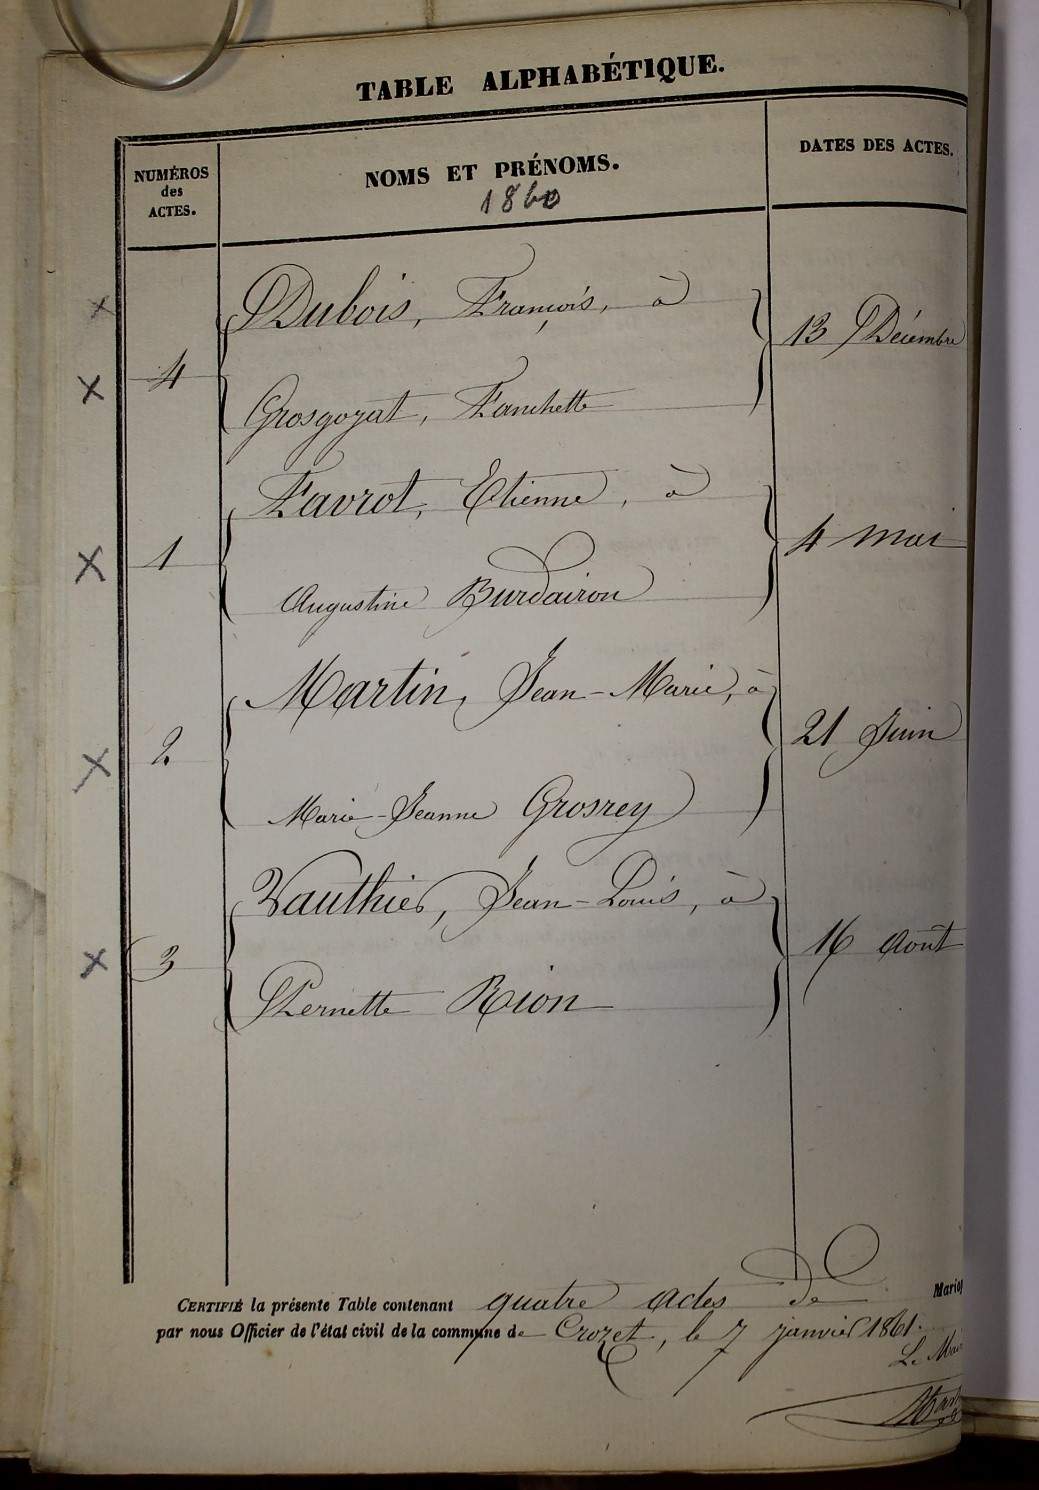 TABLE ALPHABÉTIQUE.
NUMÉROS
des
ACTES.
NOMS ET PRÉNOMS.
1860
DATES DES ACTES.
Dubois, François, à
4
13 Décembre
Grosgozat, Fanchette
Favrot, Etienne, à
1
4 mai
Augustine Burdairon
Martin, Jean-Marie, à
2
21 Juin
Marie-Jeanne Grosrey
Vauthier, Jean-Louis, à
3
16 Aout
Pernette Rion
CERTIFIÉ la présente Table contenant quatre actes de Mariag
par nous Officier de l'état civil de la commune de Crozet, le 7 janvier 1861.
Le Mai